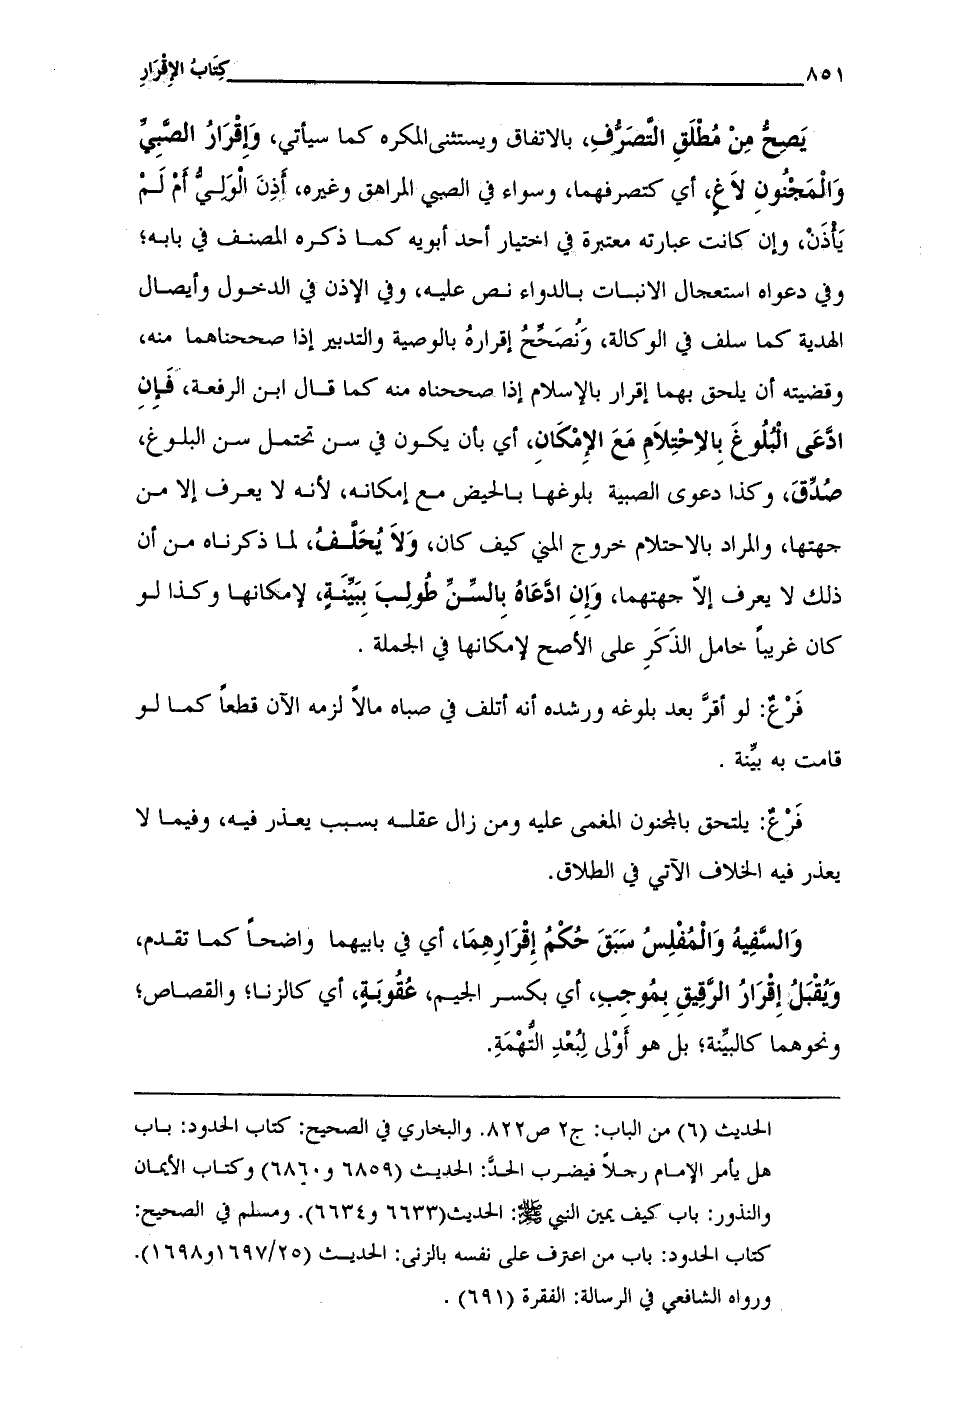 ٨٥١ كِتَابُ الإِقْرَارِ
يَصِحُّ مِنْ مُطْلَقِ التَّصَرُّفِ، بالاتفاق ويستثنى المكره كما سيأتي، وَإِقْرَارُ الصَّبِيِّ
وَالْمَجْنُونِ لاَغٍ، أي كتصرفهما، وسواء في الصبي المراهق وغيره، أَذِنَ الْوَلِيُّ أَمْ لَمْ
يَأْذَنْ، وإن كانت عبارته معتبرة في اختيار أحد أبويه كما ذكره المصنف في بابه؛
وفي دعواه استعجال الانبات بالدواء نص عليه، وفي الإذن في الدخول وأيصال
الهدية كما سلف في الوكالة، وَنُصَحِّحُ إقرارهُ بالوصية والتدبير إذا صححناهما منه،
وقضيته أن يلحق بهما إقرار بالإسلام إذا صححناه منه كما قال ابن الرفعة، فَإِنِ
ادَّعَى الْبُلُوغَ بِالاِحْتِلاَمِ مَعَ الإِمْكَانِ، أي بأن يكون في سن تحتمل سن البلوغ،
صُدِّقَ، وكذا دعوى الصبية بلوغها بالحيض مع إمكانه، لأنه لا يعرف إلا من
جهتها، والمراد بالاحتلام خروج المني كيف كان، وَلاَ يُحَلَّفُ، لما ذكرناه من أن
ذلك لا يعرف إلاّ جهتهما، وَإِنِ ادَّعَاهُ بِالسِّنِّ طُولِبَ بِبَيِّنَةٍ، لإمكانها وكذا لو
كان غريباً خامل الذَكَرِ على الأصح لإمكانها في الجملة .
فَرْعٌ: لو أقرَّ بعد بلوغه ورشده أنه أتلف في صباه مالاً لزمه الآن قطعاً كما لو
قامت به بيِّنة .
فَرْعٌ: يلتحق بالمجنون المغمى عليه ومن زال عقله بسبب يعذر فيه، وفيما لا
يعذر فيه الخلاف الآتي في الطلاق.
وَالسَّفِيهُ وَالْمُفْلِسُ سَبَقَ حُكْمُ إِقْرَارِهِمَا، أي في بابيهما واضحاً كما تقدم،
وَيُقْبَلُ إِقْرَارُ الرَّقِيقِ بِمُوجِبِ، أي بكسر الجيم، عُقُوبَةٍ، أي كالزنا؛ والقصاص؛
ونحوهما كالبيِّنة؛ بل هو أَوْلى لِبُعْدِ التُّهْمَةِ.
الحديث (٦) من الباب: ج٢ ص٨٢٢. والبخاري في الصحيح: كتاب الحدود: باب
هل يأمر الإمام رجلاً فيضرب الحدَّ: الحديث (٦٨٥٩ و٦٨٦٠) وكتاب الأيمان
والنذور: باب كيف يمين النبي ﷺ: الحديث(٦٦٣٣ و٦٦٣٤). ومسلم في الصحيح:
كتاب الحدود: باب من اعترف على نفسه بالزنى: الحديث (١٦٩٧/٢٥و١٦٩٨).
ورواه الشافعي في الرسالة: الفقرة (٦٩١) .